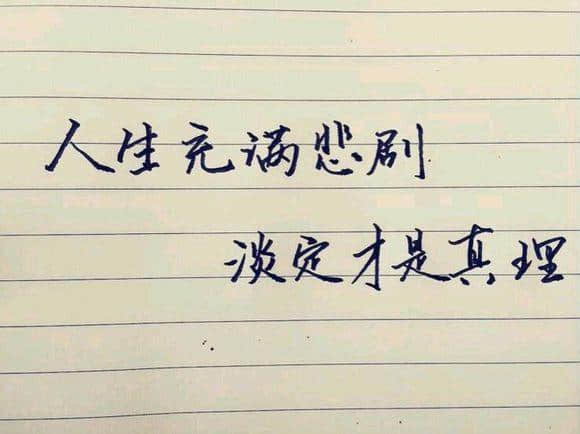 人生充满悲剧
淡定才是真理